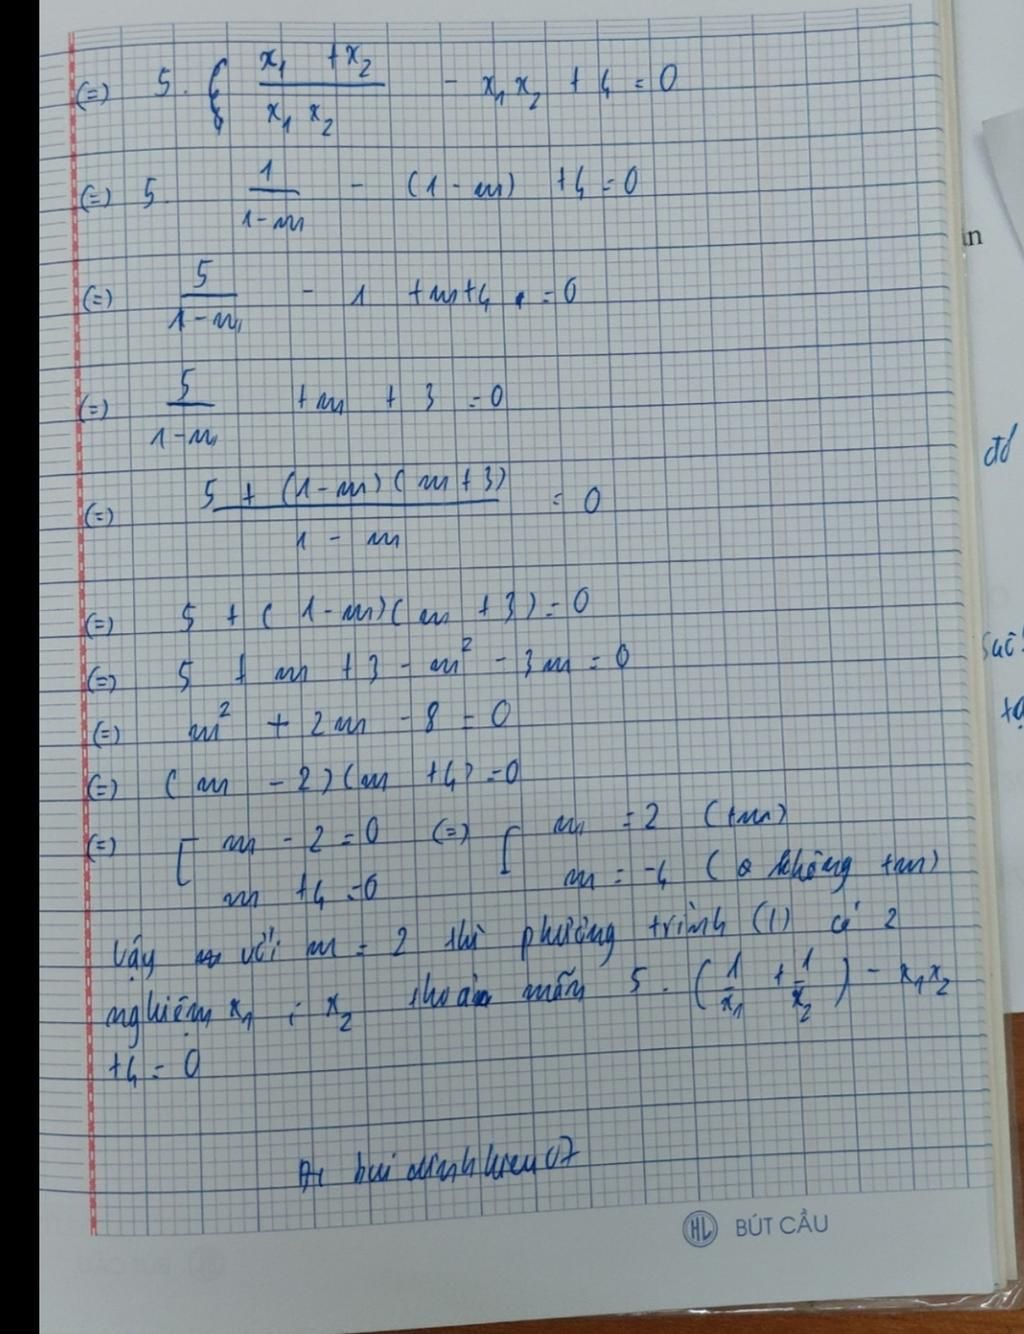 (=) 5. ( (x₁ + x₂)/(x₁ x₂) - x₁ x₂ + 4 = 0
(=) 5. 1/(1-m) - (1-m) + 4 = 0
(=) 5/(1-m) - 1 + m + 4 = 0
(=) 5/(1-m) + m + 3 = 0
(=) (5 + (1-m)(m+3))/(1-m) = 0
(=) 5 + (1-m)(m+3) = 0
(=) 5 + m + 3 - m² - 3m = 0
(=) m² + 2m - 8 = 0
(=) (m - 2)(m + 4) = 0
(=) [ m - 2 = 0 (=) [ m = 2 (tm)
m + 4 = 0 m = -4 (không tm)
Vậy với m = 2 thì phương trình (1) có 2
nghiệm x₁ ; x₂ thoả mãn 5. (1/x₁ + 1/x₂) - x₁x₂
+4 = 0
BÚT CẦU
HL
đó